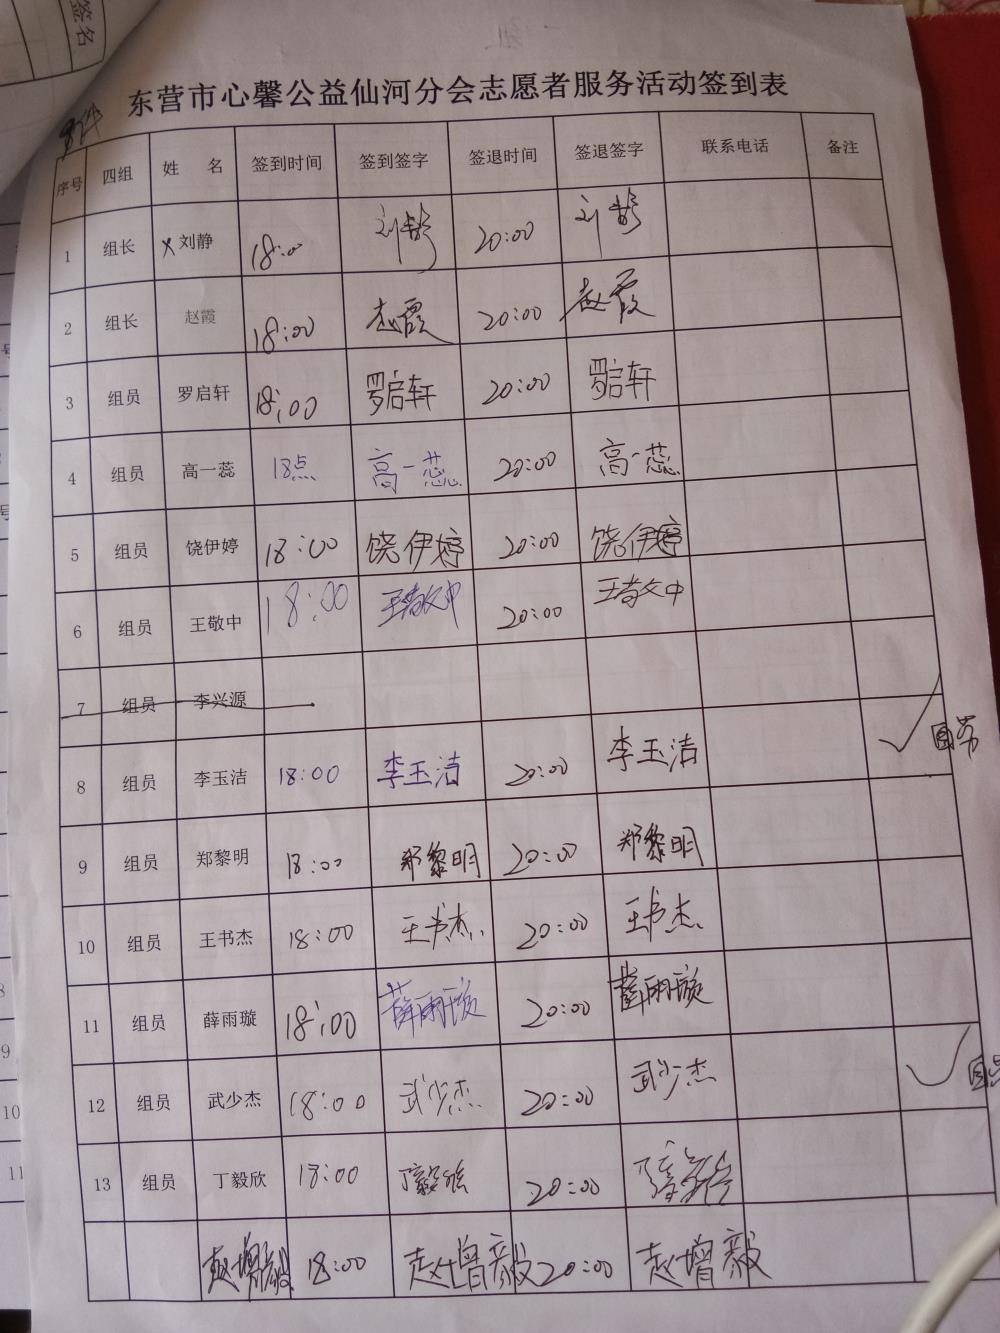 签名
东营市心馨公益仙河分会志愿者服务活动签到表
序号 四组 姓 名 签到时间 签到签字 签退时间 签退签字 联系电话 备注
1 组长 刘静 18:0 刘静 20:00 刘静
2 组长 赵霞 18:00 赵霞 20:00 赵霞
3 组员 罗启轩 18:00 罗启轩 20:00 罗启轩
4 组员 高一蕊 18点 高一蕊 20:00 高一蕊
5 组员 饶伊婷 18:00 饶伊婷 20:00 饶伊婷
6 组员 王敬中 18:00 王敬中 20:00 王敬中
7 组员 李兴源
8 组员 李玉洁 18:00 李玉洁 20:00 李玉洁
9 组员 郑黎明 18:00 郑黎明 20:00 郑黎明
10 组员 王书杰 18:00 王书杰 20:00 王书杰
11 组员 薛雨璇 18:00 薛雨璇 20:00 薛雨璇
12 组员 武少杰 18:00 武少杰 20:00 武少杰
13 组员 丁毅欣 18:00 丁毅欣 20:00
赵增毅 18:00 赵增毅 20:00 赵增毅